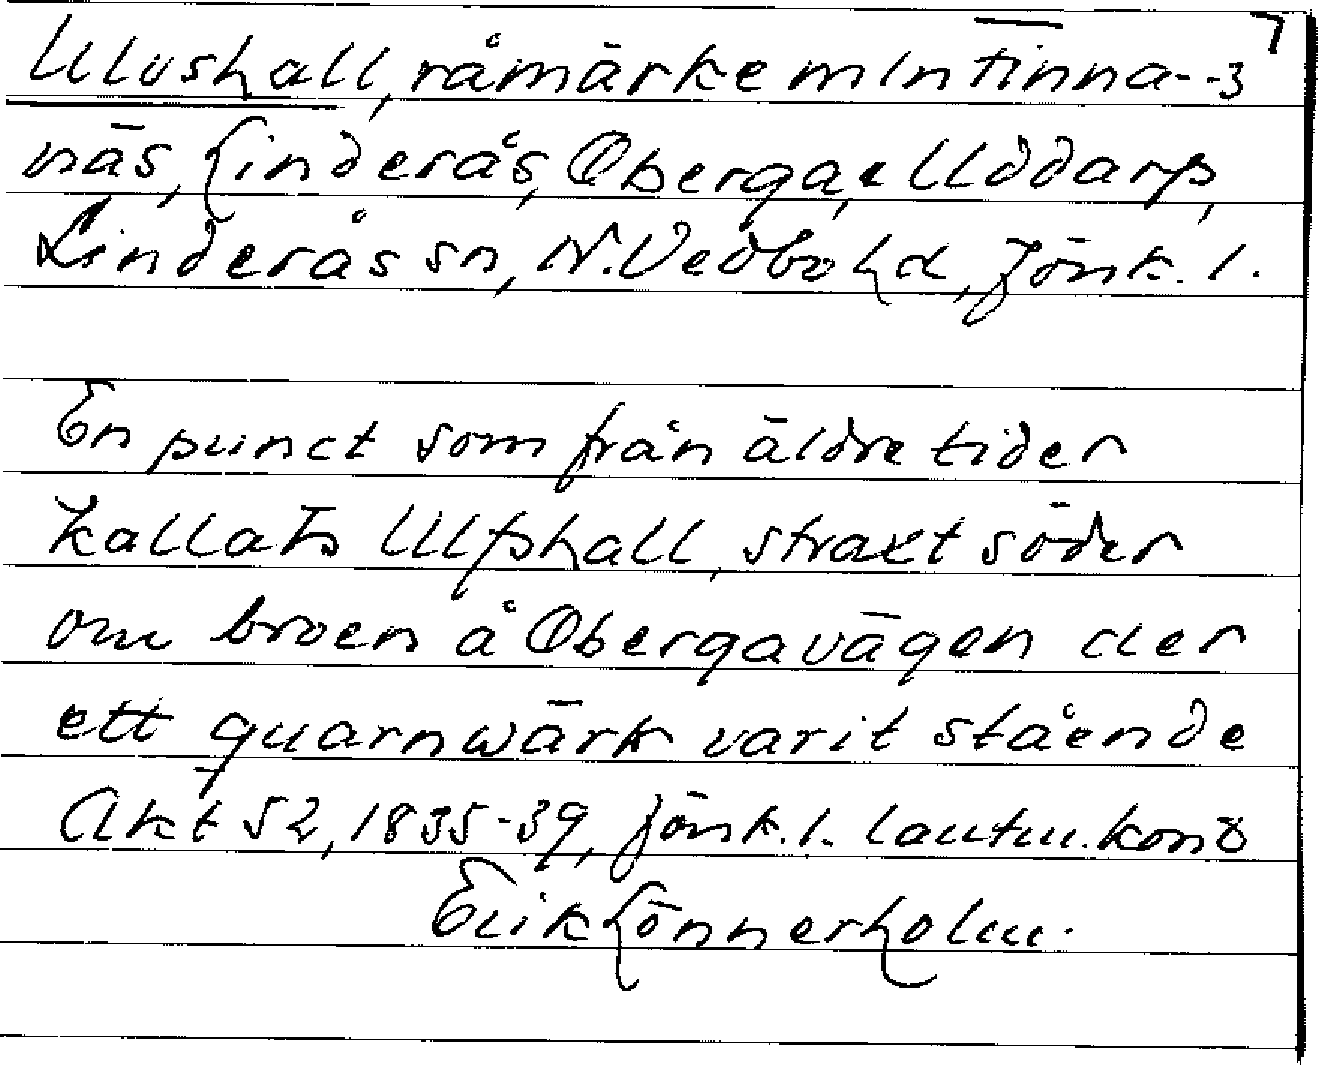 Ulvshall, råmärke mln Tinna- -3
näs, Linderås, Oberga, e Uddarp,
Linderås sn, N. Vedbo hd, Jönk. l.
En punct som från äldre tider
kallats Ulfshall, straxt söder
om broen å Obergavägen der
ett quarnwärk varit stående
Akt 52, 1835-39, Jönk. l. lantm.kont
Erik Lönnerholm.